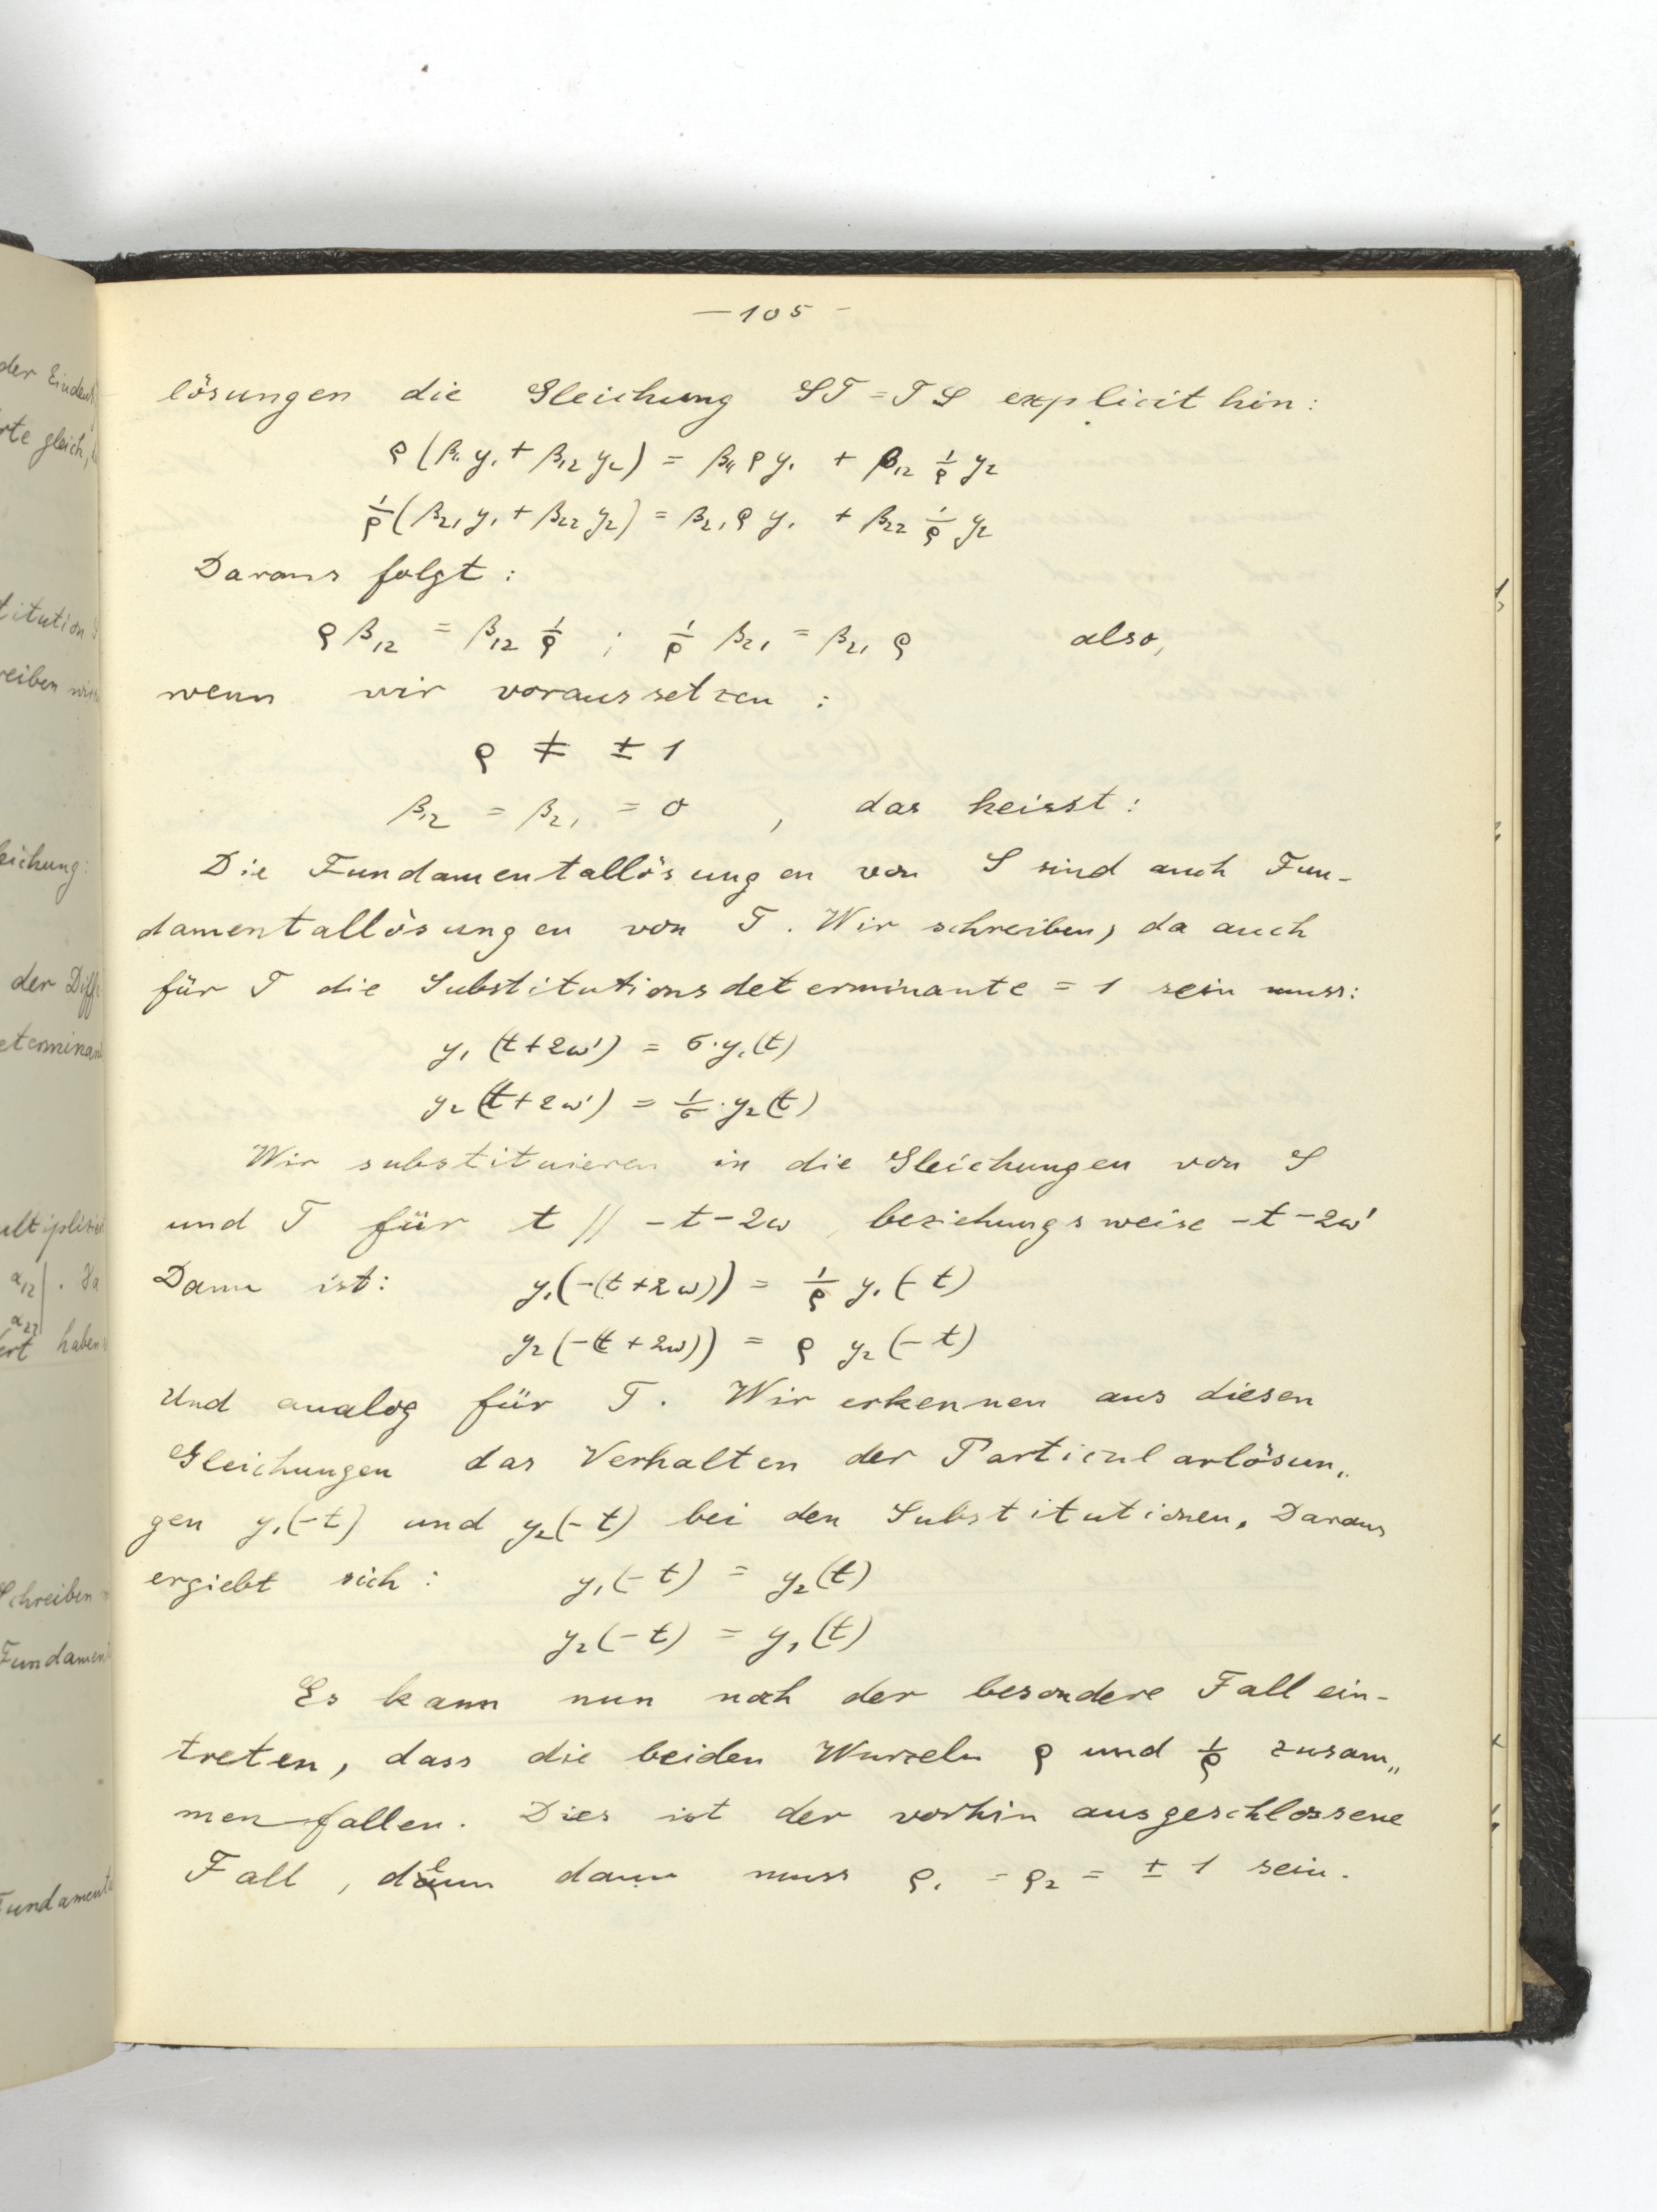 —105—
lösungen die Gleichung ST=TS explicit hin:
ρ(β₁₁y₁+β₁₂y₂) = β₁₁ρy₁ + β₁₂ 1/ρ y₂
1/ρ(β₂₁y₁+β₂₂y₂) = β₂₁ρy₁ + β₂₂ 1/ρ y₂
Daraus folgt:
ρβ₁₂ = β₁₂ 1/ρ ; 1/ρ β₂₁ = β₂₁ρ also,
wenn wir voraussetzen:
ρ ≠ ±1
β₁₂ = β₂₁ = 0 , das heisst:
Die Fundamentallösungen von S sind auch Fun-
damentallösungen von T. Wir schreiben, da auch
für T die Substitutionsdeterminante = 1 sein muss:
y₁(t+2ω') = σ·y₁(t)
y₂(t+2ω') = 1/σ·y₂(t)
Wir substituieren in die Gleichungen von S
und T für t // -t-2ω, beziehungsweise -t-2ω'
Dann ist: y₁(-(t+2ω)) = 1/ρ y₁(-t)
y₂(-(t+2ω)) = ρ y₂(-t)
Und analog für T. Wir erkennen aus diesen
Gleichungen das Verhalten der Particularlösun„
gen y₁(-t) und y₂(-t) bei den Substitutionen. Daraus
ergiebt sich: y₁(-t) = y₂(t)
y₂(-t) = y₁(t)
Es kann nun noch der besondere Fall ein-
treten, dass die beiden Wurzeln ρ und 1/ρ zusam„
menfallen. Dies ist der vorhin ausgeschlossene
Fall, denn dann muss ρ₁ = ρ₂ = ±1 sein.